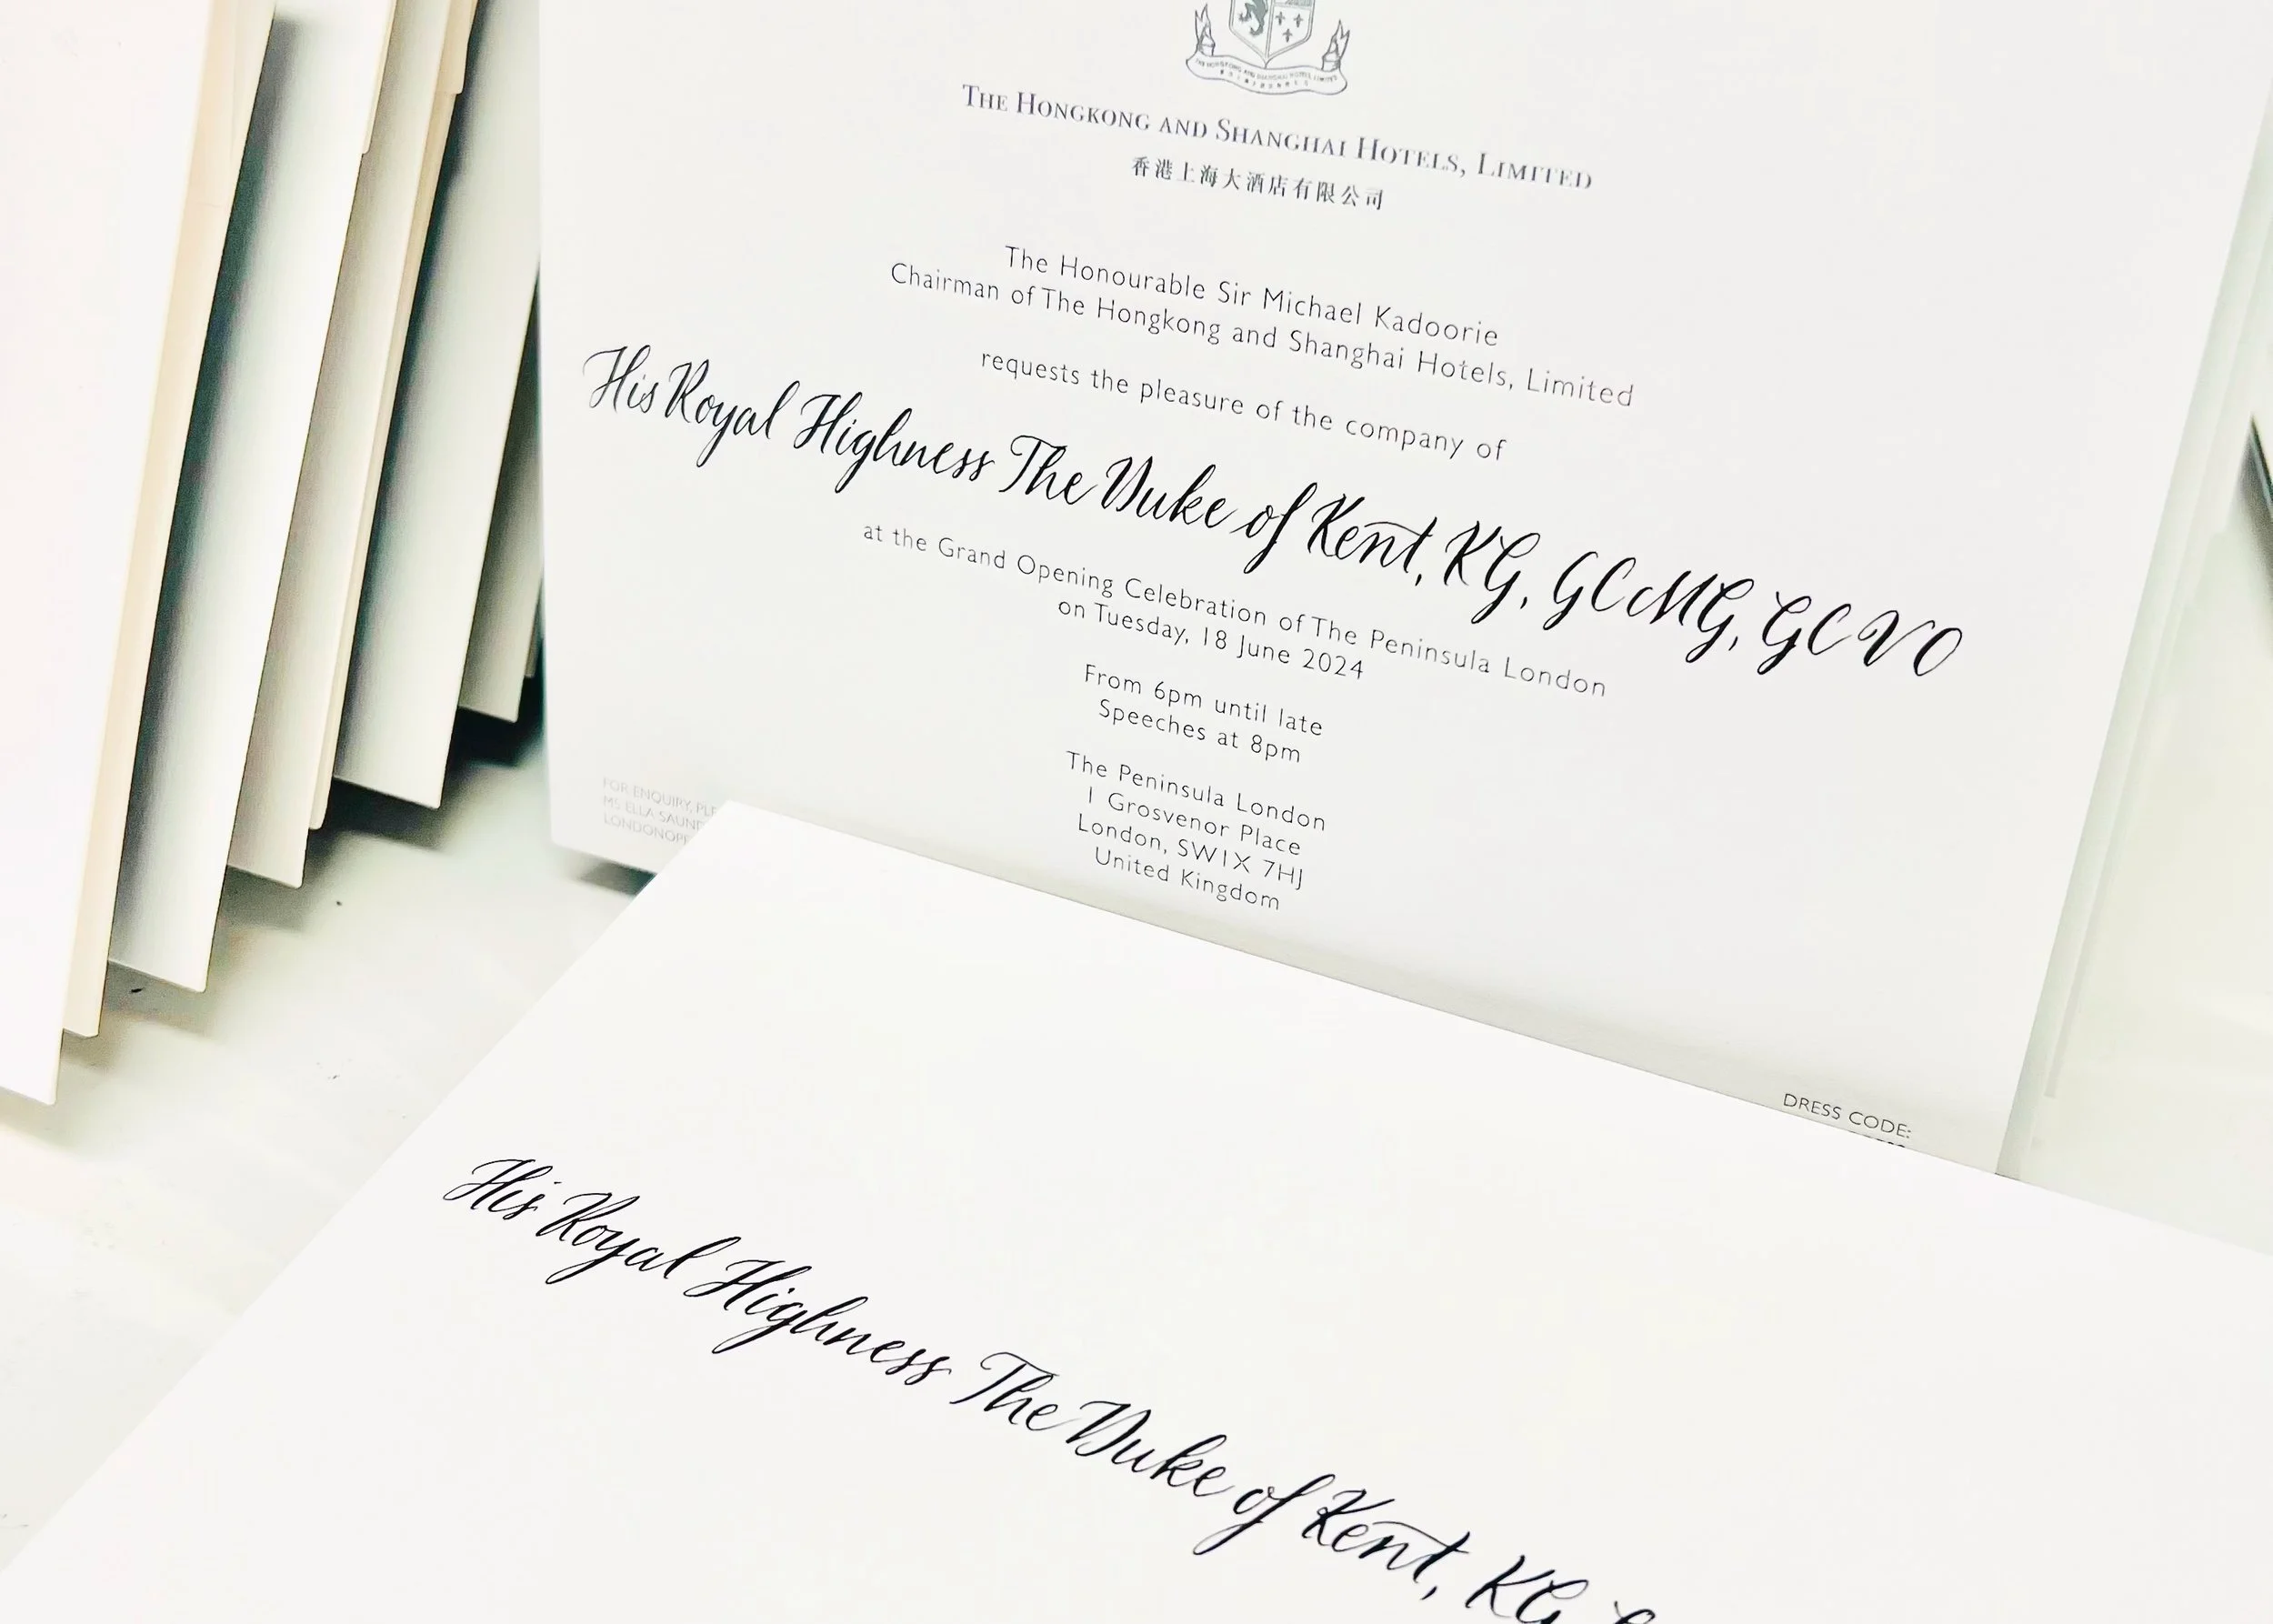 THE HONGKONG AND SHANGHAI HOTELS, LIMITED
THE HONGKONG AND SHANGHAI HOTELS, LIMITED
香港上海大酒店有限公司
The Honourable Sir Michael Kadoorie
Chairman of The Hongkong and Shanghai Hotels, Limited
requests the pleasure of the company of
His Royal Highness The Duke of Kent, KG, GCMG, GCVO
at the Grand Opening Celebration of The Peninsula London
on Tuesday, 18 June 2024
From 6pm until late
Speeches at 8pm
The Peninsula London
1 Grosvenor Place
London, SW1X 7HJ
United Kingdom
FOR ENQUIRY,
MS ELLA
DRESS CODE:
His Royal Highness The Duke of Kent, KG